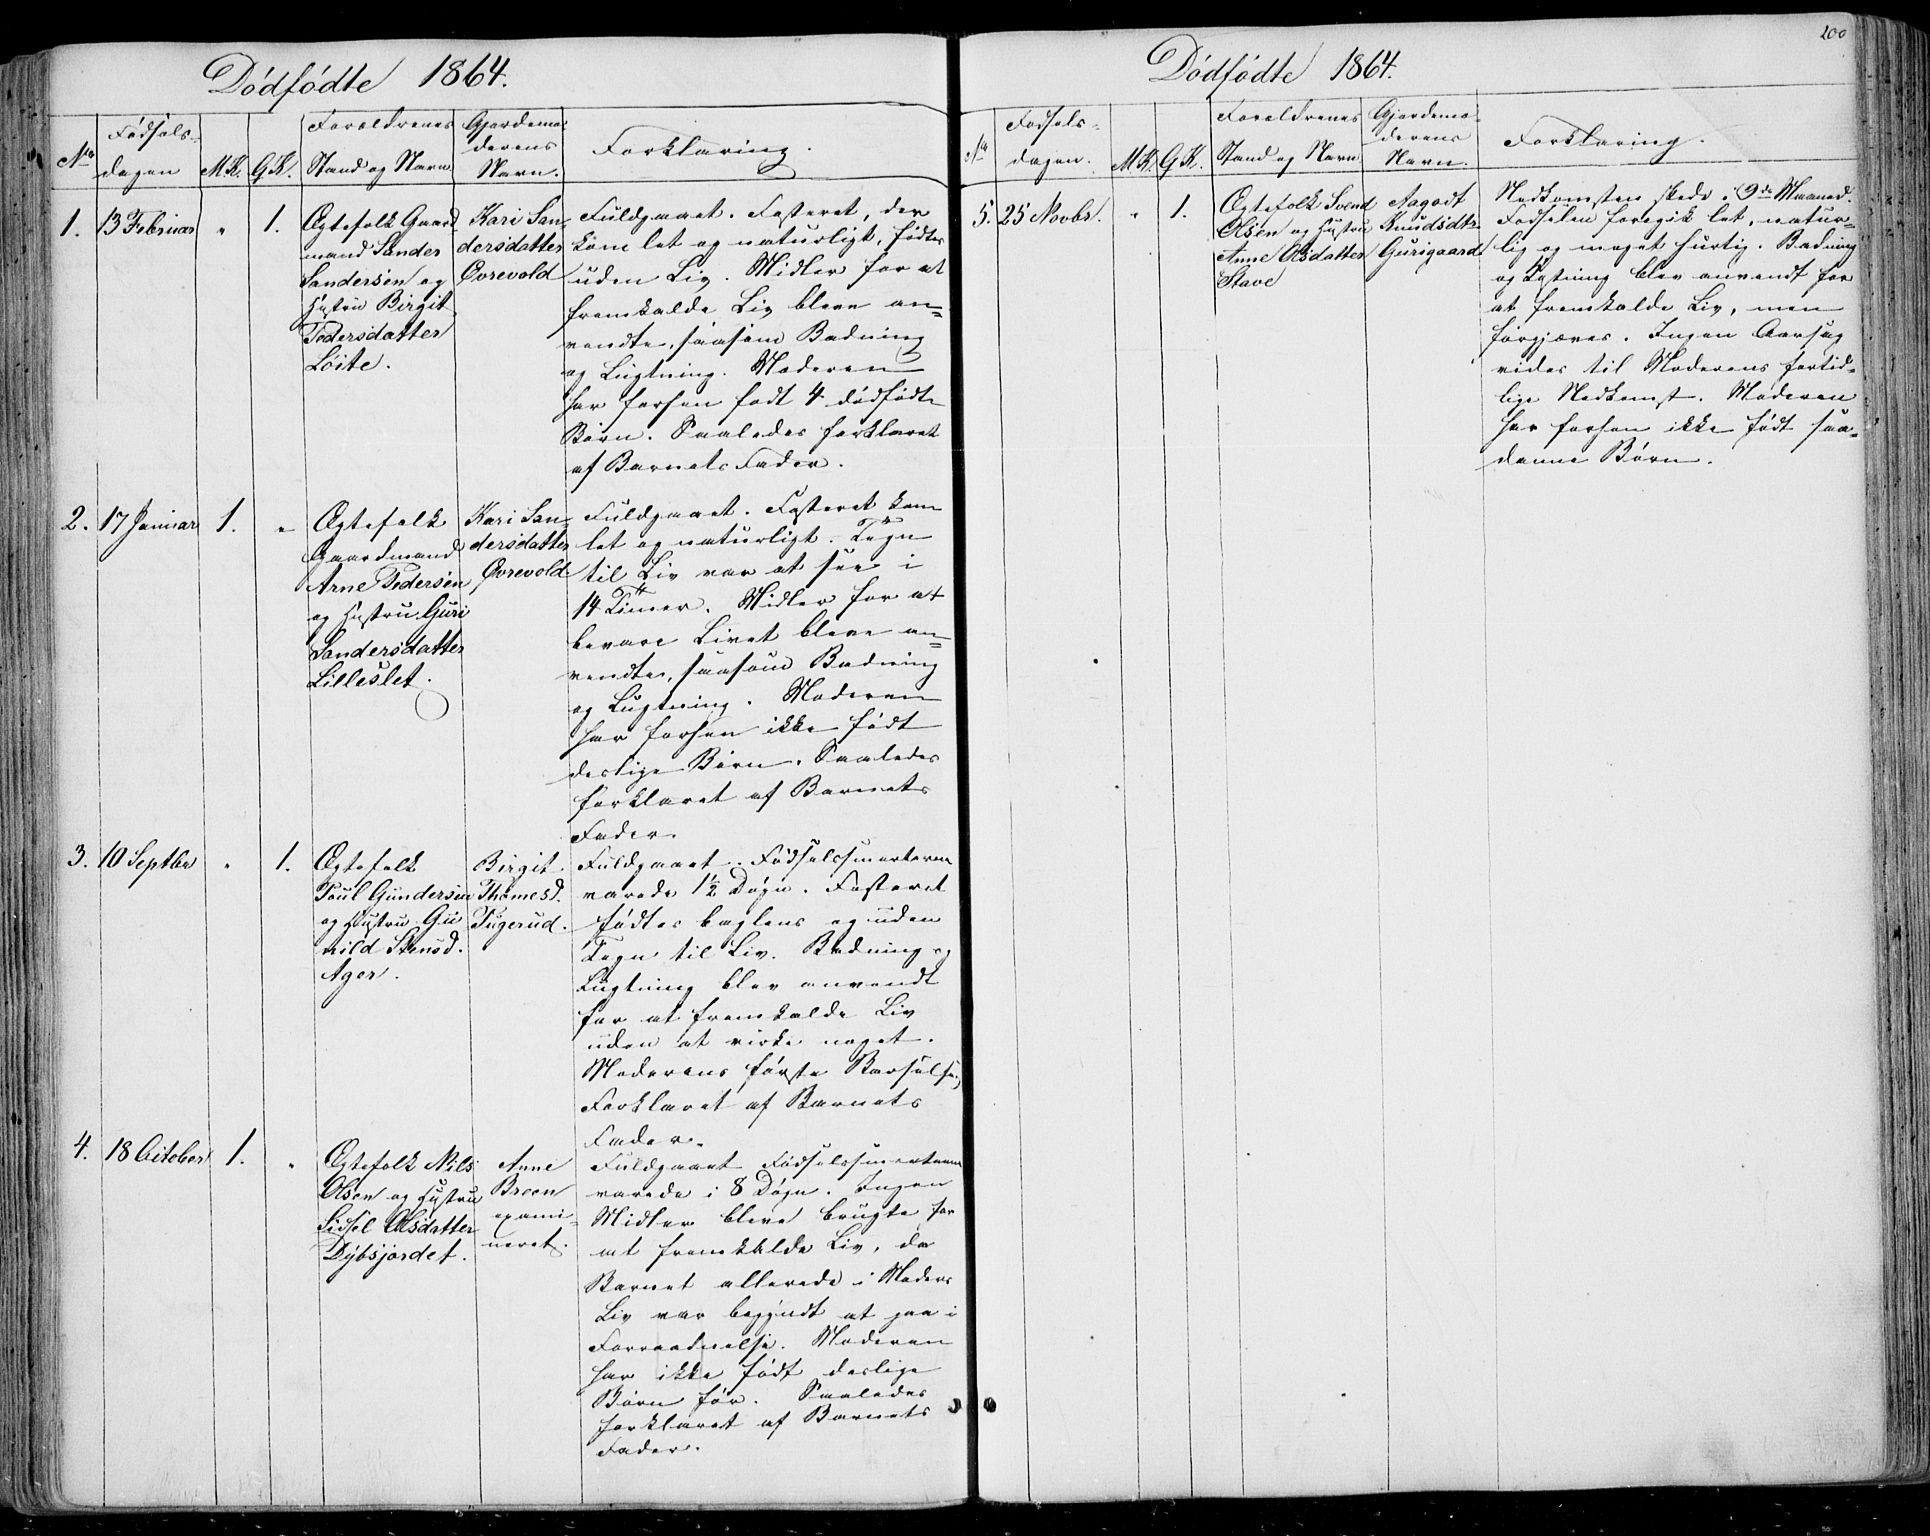 Dødfødte 1864.
No
Fødsels-
dagen
M.K.
Q.K.
Forældrenes
Stand og Navn
Gjordemo-
derens
Navn.
Forklaring.
1.
13 Februar
"
1.
Ægtefolk Gaard
mand Sander
Sandersen og
Hustru Birgit
Pedersdatter
Loite.
Kari San-
dersdatter
Øvrevold
Fuldgaaet. Fosteret, der
kom let og naturligt, fødtes
uden Liv. Midler for at
fremkalde Liv bleve an-
vendte, saasom Badning
og Lugtning. Moderen
har forhen født 4 dødfødte
Børn. Saaledes forklaret
af Barnets Fader.
2.
17 Januar
1.
"
Ægtefolk
Gaardmand
Arne Pedersen
og Hustru Guri
Sandersdatter
Lilleslet.
Kari San-
dersdatter
Øvrevold
Fuldgaaet. Fosteret kom
let og naturligt. Tegn
til Liv var at see i
14 Timer. Midler for at
bevare Livet bleve an-
vendte, saasom Badning
og Lugtning. Moderen
har forhen ikke født
deslige Børn. Saaledes
forklaret af Barnets
Fader.
3.
10 Septbr
"
1.
Ægtefolk
Poul Gundersen
og Hustru Gu
nild Stensd.
Ager.
Birgit
Thomesd.
Tugerud.
Fuldgaaet. Fødselssmerterne
varede 1½ Døgn. Fosteret
fødtes baglens og uden
Tegn til Liv. Badning og
Lugtning blev anvendt
for at fremkalde Liv
uden at virke noget.
Moderens første Barselsg.
Forklaret af Barnets
Fader.
4.
18 October
1.
"
Ægtefolk Nils
Olsen og Hustru
Sidsel Olsdatter
Dybsjordet.
Anne
Breen
exami-
neret.
Fuldgaaet Fødselssmerterne
varede i 8 Døgn. Ingen
Midler bleve brugte for
at fremkalde Liv, da
Barnet allerede i Moders
Liv var begyndt at gaa i
Forraadnelse. Moderen
har ikke født deslige
Børn før. Saaledes
forklaret af Barnets
Fader.
200
Dødfødte 1864.
No
Fødsels-
dagen.
M.K.
Q.K.
Forældrenes
Stand og Navn
Gjordemo-
derens
Navn.
Forklaring.
5.
25 Novbr.
"
1.
Ægtefolk Svend
Olsen og Hustru
Anne Olsdatter
Stave
Aagodt
Knudsdtr.
Gurigaard
Nedkomsten skede i 9de Maaned.
Fødselen foregik let, natur-
lig og meget hurtig. Badning
og blev anvendt for
at fremkalde Liv, men
forgjæves. Ingen Aarsag
vides til Moderens fortid-
lige Nedkomst. Moderen
har forhen ikke født saa-
danne Børn.